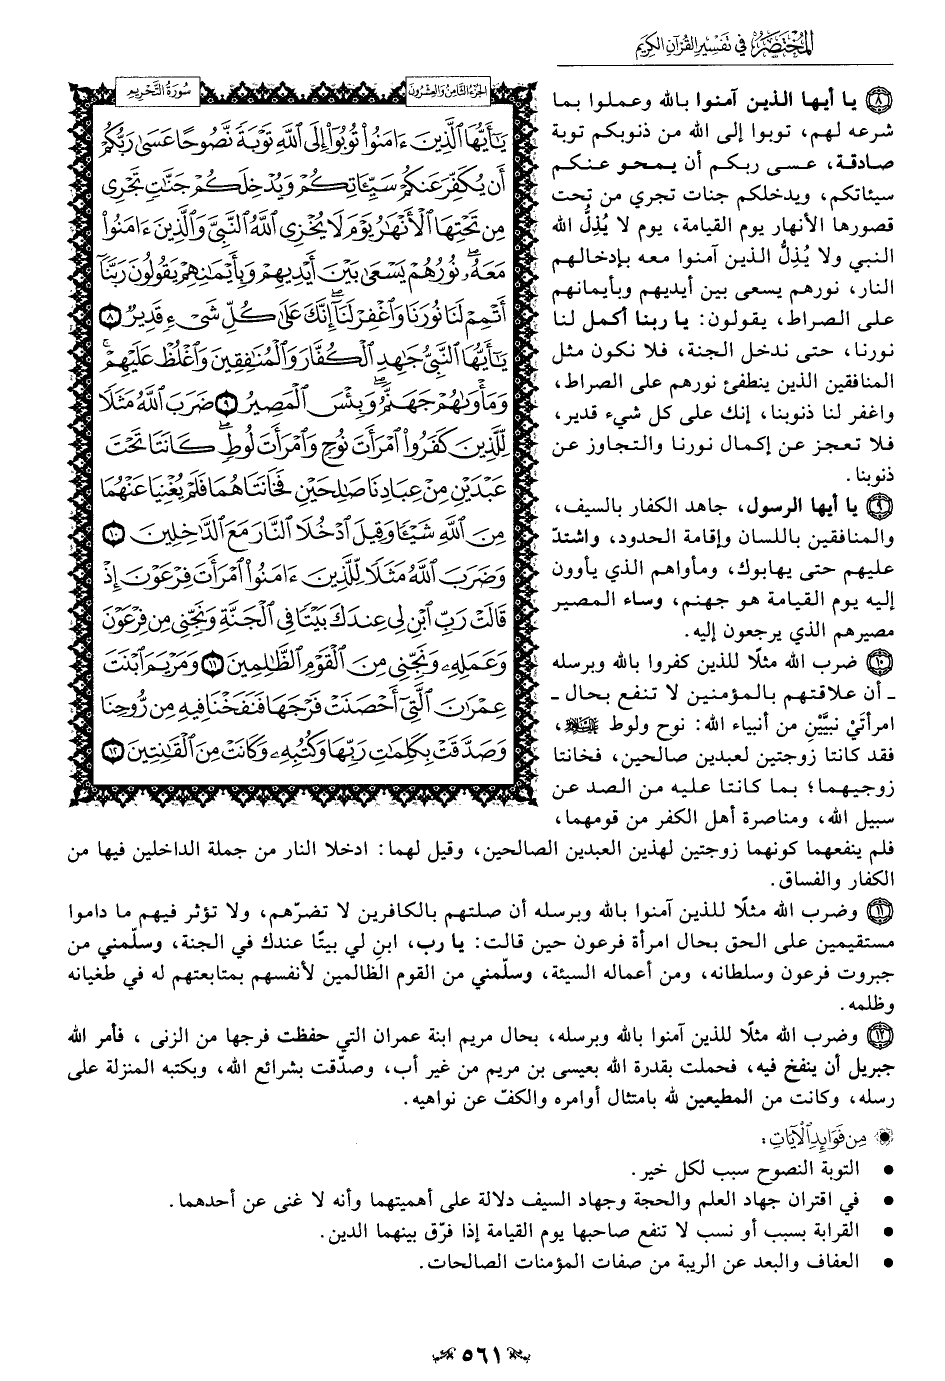 المختصر في تفسير القرآن الكريم
الجزء الثامن والعشرون
سورة التحريم
يَٰٓأَيُّهَا ٱلَّذِينَ ءَامَنُواْ تُوبُوٓاْ إِلَى ٱللَّهِ تَوۡبَةٗ نَّصُوحًا عَسَىٰ رَبُّكُمۡ
أَن يُكَفِّرَ عَنكُمۡ سَيِّـَٔاتِكُمۡ وَيُدۡخِلَكُمۡ جَنَّٰتٖ تَجۡرِي
مِن تَحۡتِهَا ٱلۡأَنۡهَٰرُ يَوۡمَ لَا يُخۡزِي ٱللَّهُ ٱلنَّبِيَّ وَٱلَّذِينَ ءَامَنُواْ
مَعَهُۥۖ نُورُهُمۡ يَسۡعَىٰ بَيۡنَ أَيۡدِيهِمۡ وَبِأَيۡمَٰنِهِمۡ يَقُولُونَ رَبَّنَآ
أَتۡمِمۡ لَنَا نُورَنَا وَٱغۡفِرۡ لَنَآۖ إِنَّكَ عَلَىٰ كُلِّ شَيۡءٖ قَدِيرٞ ٨
يَٰٓأَيُّهَا ٱلنَّبِيُّ جَٰهِدِ ٱلۡكُفَّارَ وَٱلۡمُنَٰفِقِينَ وَٱغۡلُظۡ عَلَيۡهِمۡۚ
وَمَأۡوَىٰهُمۡ جَهَنَّمُۖ وَبِئۡسَ ٱلۡمَصِيرُ ٩ ضَرَبَ ٱللَّهُ مَثَلٗا
لِّلَّذِينَ كَفَرُواْ ٱمۡرَأَتَ نُوحٖ وَٱمۡرَأَتَ لُوطٖۖ كَانَتَا تَحۡتَ
عَبۡدَيۡنِ مِنۡ عِبَادِنَا صَٰلِحَيۡنِ فَخَانَتَاهُمَا فَلَمۡ يُغۡنِيَا عَنۡهُمَا
مِنَ ٱللَّهِ شَيۡـٔٗا وَقِيلَ ٱدۡخُلَا ٱلنَّارَ مَعَ ٱلدَّٰخِلِينَ ١٠
وَضَرَبَ ٱللَّهُ مَثَلٗا لِّلَّذِينَ ءَامَنُواْ ٱمۡرَأَتَ فِرۡعَوۡنَ إِذۡ
قَالَتۡ رَبِّ ٱبۡنِ لِي عِندَكَ بَيۡتٗا فِي ٱلۡجَنَّةِ وَنَجِّنِي مِن فِرۡعَوۡنَ
وَعَمَلِهِۦ وَنَجِّنِي مِنَ ٱلۡقَوۡمِ ٱلظَّٰلِمِينَ ١١ وَمَرۡيَمَ ٱبۡنَتَ
عِمۡرَٰنَ ٱلَّتِيٓ أَحۡصَنَتۡ فَرۡجَهَا فَنَفَخۡنَا فِيهِ مِن رُّوحِنَا
وَصَدَّقَتۡ بِكَلِمَٰتِ رَبِّهَا وَكُتُبِهِۦ وَكَانَتۡ مِنَ ٱلۡقَٰنِتِينَ ١٢
٨ يا أيها الذين آمنوا بالله وعملوا بما
شرعه لهم، توبوا إلى الله من ذنوبكم توبة
صادقة، عسى ربكم أن يمحو عنكم
سيئاتكم، ويدخلكم جنات تجري من تحت
قصورها الأنهار يوم القيامة، يوم لا يُذِلُّ الله
النبي ولا يُذِلُّ الذين آمنوا معه بإدخالهم
النار، نورهم يسعى بين أيديهم وبأيمانهم
على الصراط، يقولون: يا ربنا أكمل لنا
نورنا، حتى ندخل الجنة، فلا نكون مثل
المنافقين الذين ينطفئ نورهم على الصراط،
واغفر لنا ذنوبنا، إنك على كل شيء قدير،
فلا تعجز عن إكمال نورنا والتجاوز عن
ذنوبنا.
٩ يا أيها الرسول، جاهد الكفار بالسيف،
والمنافقين باللسان وإقامة الحدود، واشتدّ
عليهم حتى يهابوك، ومأواهم الذي يأوون
إليه يوم القيامة هو جهنم، وساء المصير
مصيرهم الذي يرجعون إليه.
١٠ ضرب الله مثلًا للذين كفروا بالله وبرسله
ـ أن علاقتهم بالمؤمنين لا تنفع بحال ـ
امرأتَيْ نبيَّيْنِ من أنبياء الله: نوح ولوط عليهما السلام،
فقد كانتا زوجتين لعبدين صالحين، فخانتا
زوجيهما؛ بما كانتا عليه من الصد عن
سبيل الله، ومناصرة أهل الكفر من قومهما،
فلم ينفعهما كونهما زوجتين لهذين العبدين الصالحين، وقيل لهما: ادخلا النار من جملة الداخلين فيها من
الكفار والفساق.
١١ وضرب الله مثلًا للذين آمنوا بالله وبرسله أن صلتهم بالكافرين لا تضرّهم، ولا تؤثر فيهم ما داموا
مستقيمين على الحق بحال امرأة فرعون حين قالت: يا رب، ابنِ لي بيتًا عندك في الجنة، وسلّمني من
جبروت فرعون وسلطانه، ومن أعماله السيئة، وسلّمني من القوم الظالمين لأنفسهم بمتابعتهم له في طغيانه
وظلمه.
١٢ وضرب الله مثلًا للذين آمنوا بالله وبرسله، بحال مريم ابنة عمران التي حفظت فرجها من الزنى ، فأمر الله
جبريل أن ينفخ فيه، فحملت بقدرة الله بعيسى بن مريم من غير أب، وصدّقت بشرائع الله، وبكتبه المنزلة على
رسله، وكانت من المطيعين لله بامتثال أوامره والكفّ عن نواهيه.
من فوائد الآيات:
• التوبة النصوح سبب لكل خير.
• في اقتران جهاد العلم والحجة وجهاد السيف دلالة على أهميتهما وأنه لا غنى عن أحدهما.
• القرابة بسبب أو نسب لا تنفع صاحبها يوم القيامة إذا فرّق بينهما الدين.
• العفاف والبعد عن الريبة من صفات المؤمنات الصالحات.
٥٦١